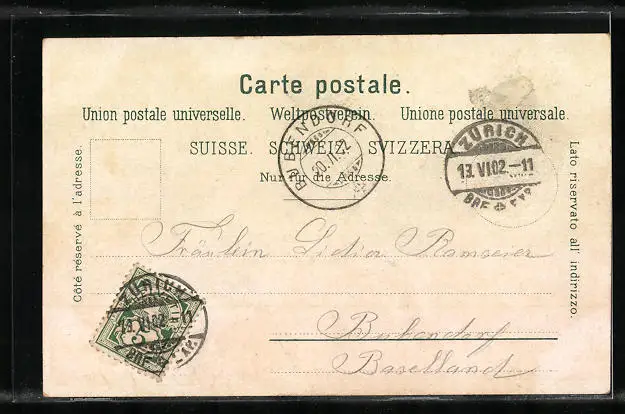 Carte postale.
Union postale universelle. Weltpostverein. Unione postale universale.
SUISSE. SCHWEIZ. SVIZZERA
Nur für die Adresse.
Côté réservé à l'adresse.
Lato riservato all' indirizzo.
BUBENDORF
ZÜRICH
13.VI02-11
BRF.
Fräulein Lidia Ramseier
Bubendorf
Baselland
ZÜRICH
13.VI02
5